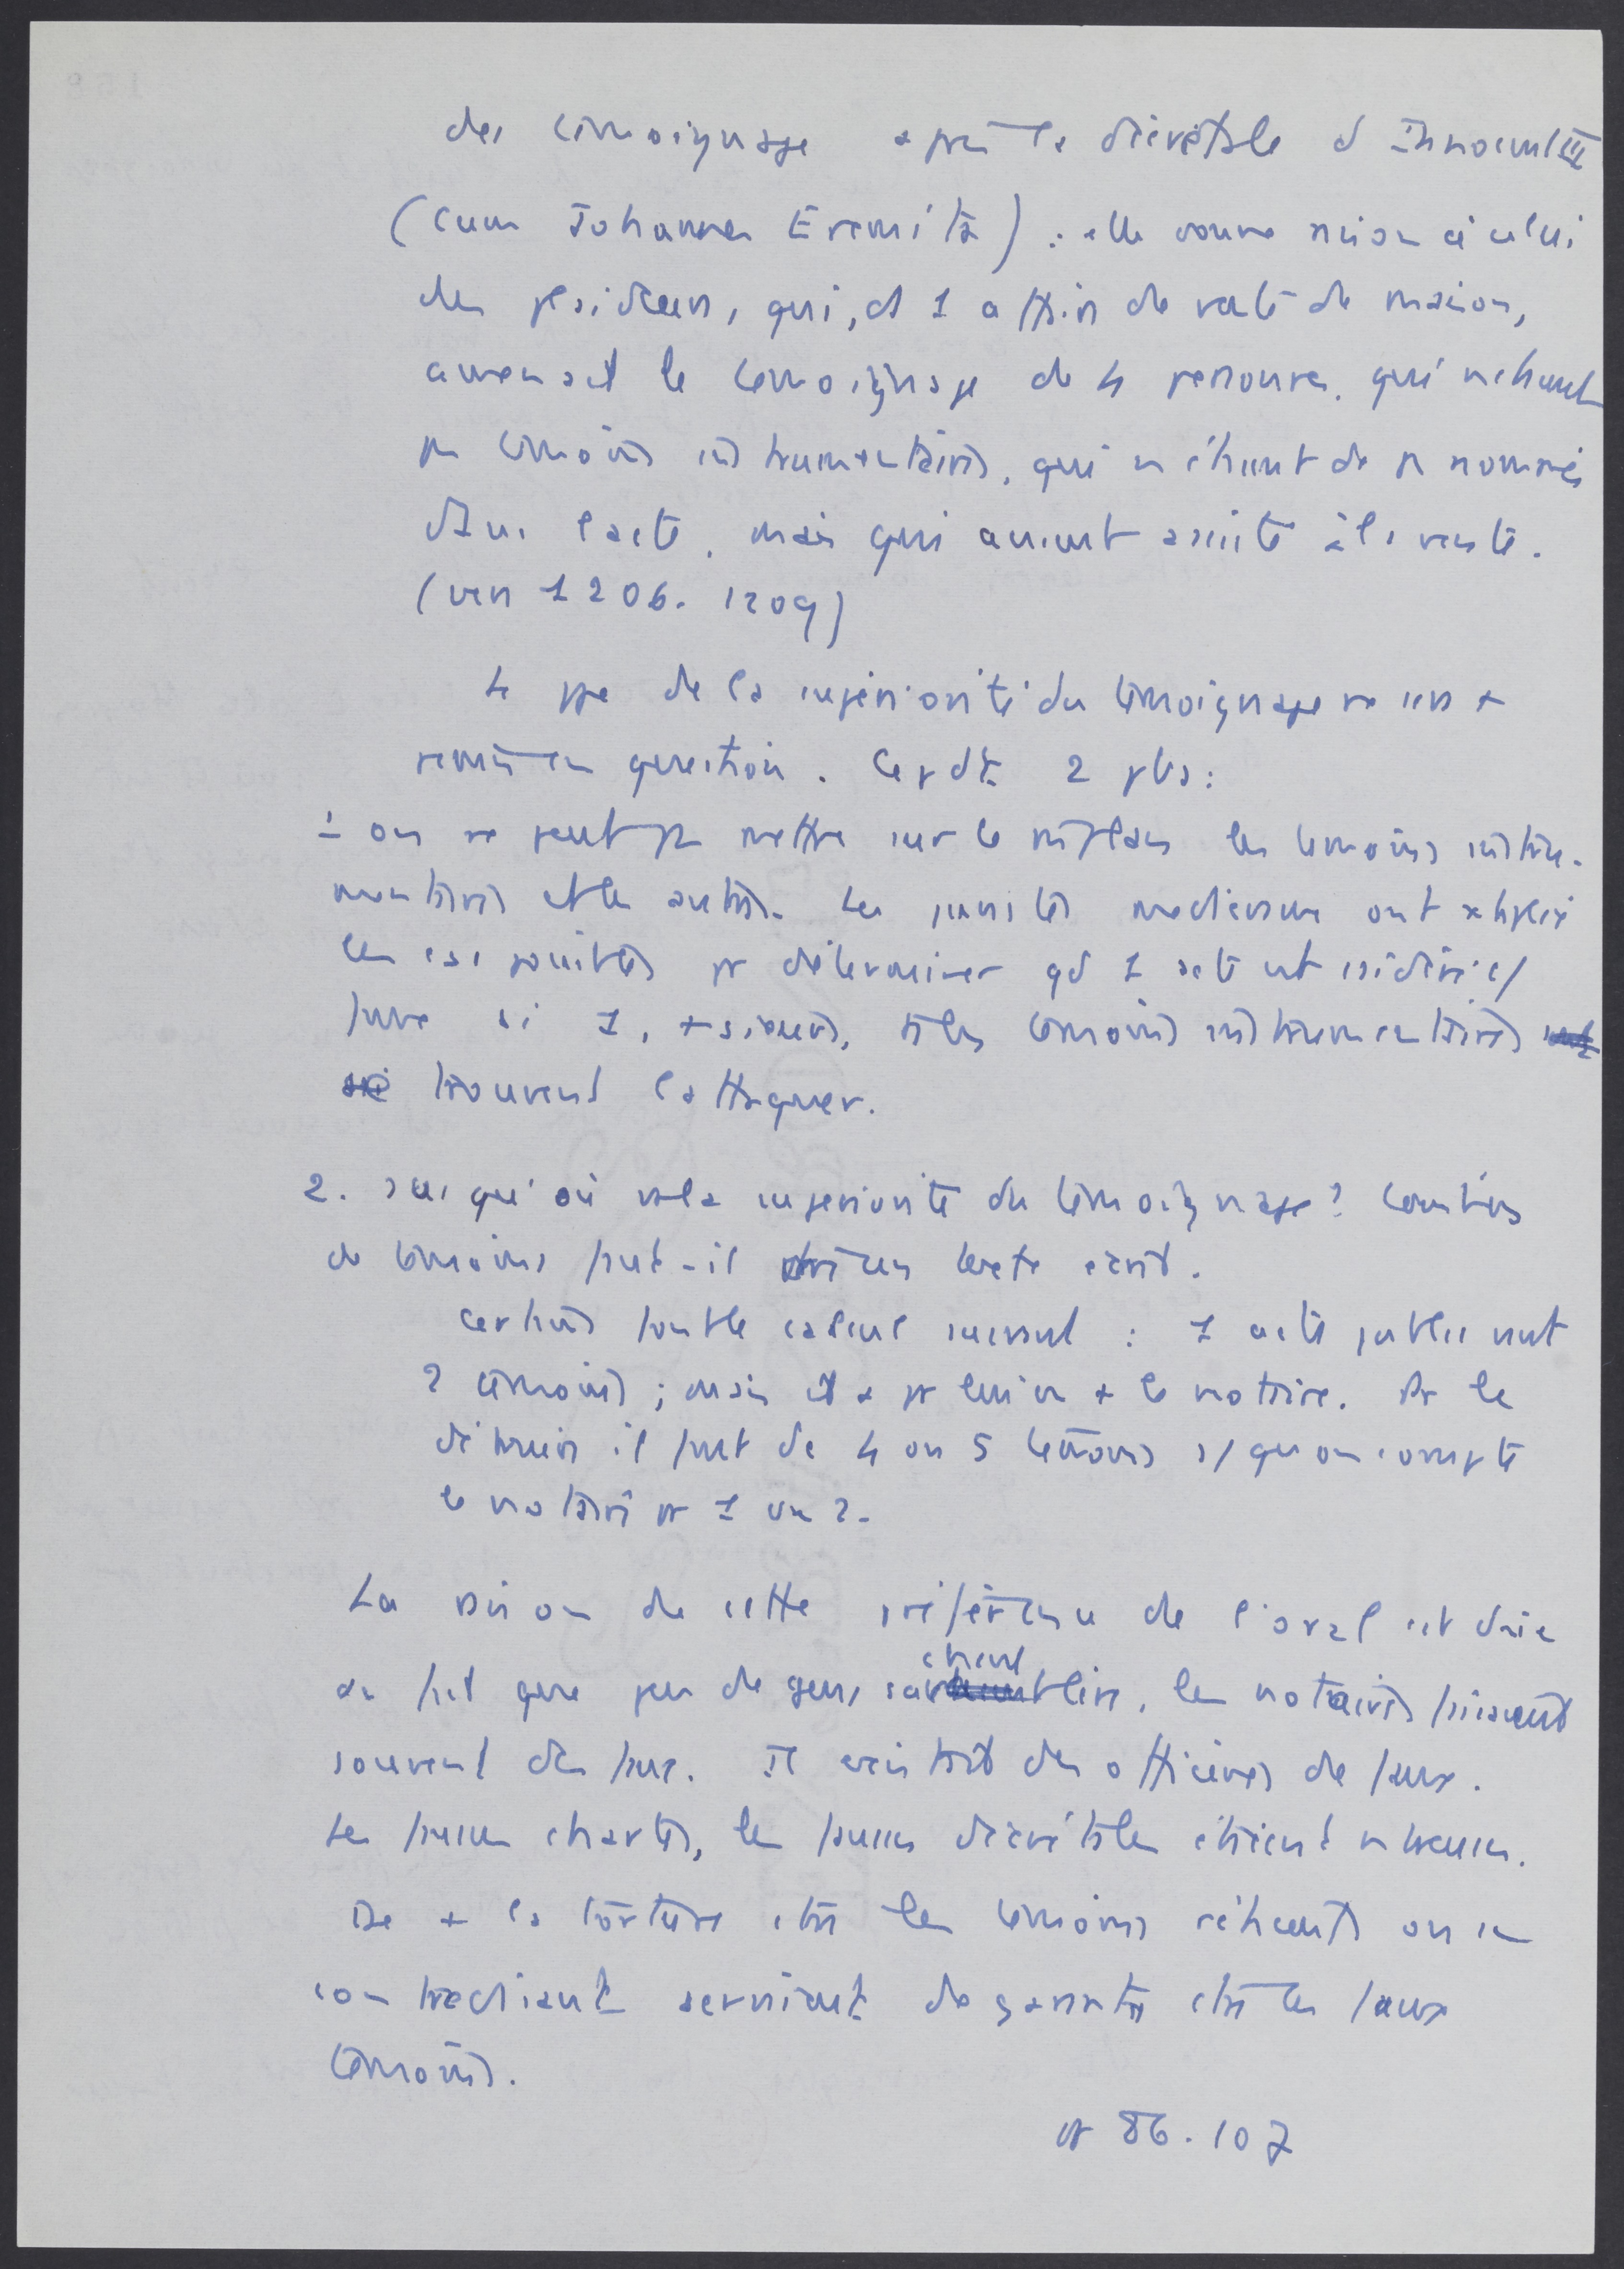 des témoignage après la décrétale d'Innocent III
(cum Johannes Eremita) : elle donne raison à celui
des plaideurs, qui, ds 1 affaire de vente de maison,
amenait le témoignage de 4 personnes, qui n'étaient
pas témoins instrumentaires, qui n'étaient de pas nommés
dans l'acte, mais qui avaient assisté à la vente.
(vers 1206. 1209)
Le ppe de la supériorité du témoignage ne sera +
remis en question. Cepdt 2 pbs :
1 on ne peut pas mettre sur le m plan les témoins instru-
mentaires et les autres. Les juristes médiévaux ont
les cas possibles pr déterminer qd 1 acte est considéré c/
faux si 1, +sieurs, ts les témoins instrumentaires
trouvent l'attaquer.
2. jusqu'où va la supériorité du témoignage? Combien
de témoins faut-il texte écrit.
Certains font le calcul suivant : 1 acte public vaut
2 témoins ; mais il a pr lui en + le notaire. Pr le
détruire il faut de 4 ou 5 témoins s/ qu'on compte
le notaire pr 1 ou 2.
La raison de cette préférence de l'oral est due
au fait que peu de gens savaient lire, les notaires faisaient
souvent des faux. Il existait des officines de faux.
Les fausses chartes, les fausses décrétales étaient nbreuses.
De + la torture ctre les témoins réticents ou se
contredisant servaient de garantie ctre les faux
témoins.
pp 86. 107